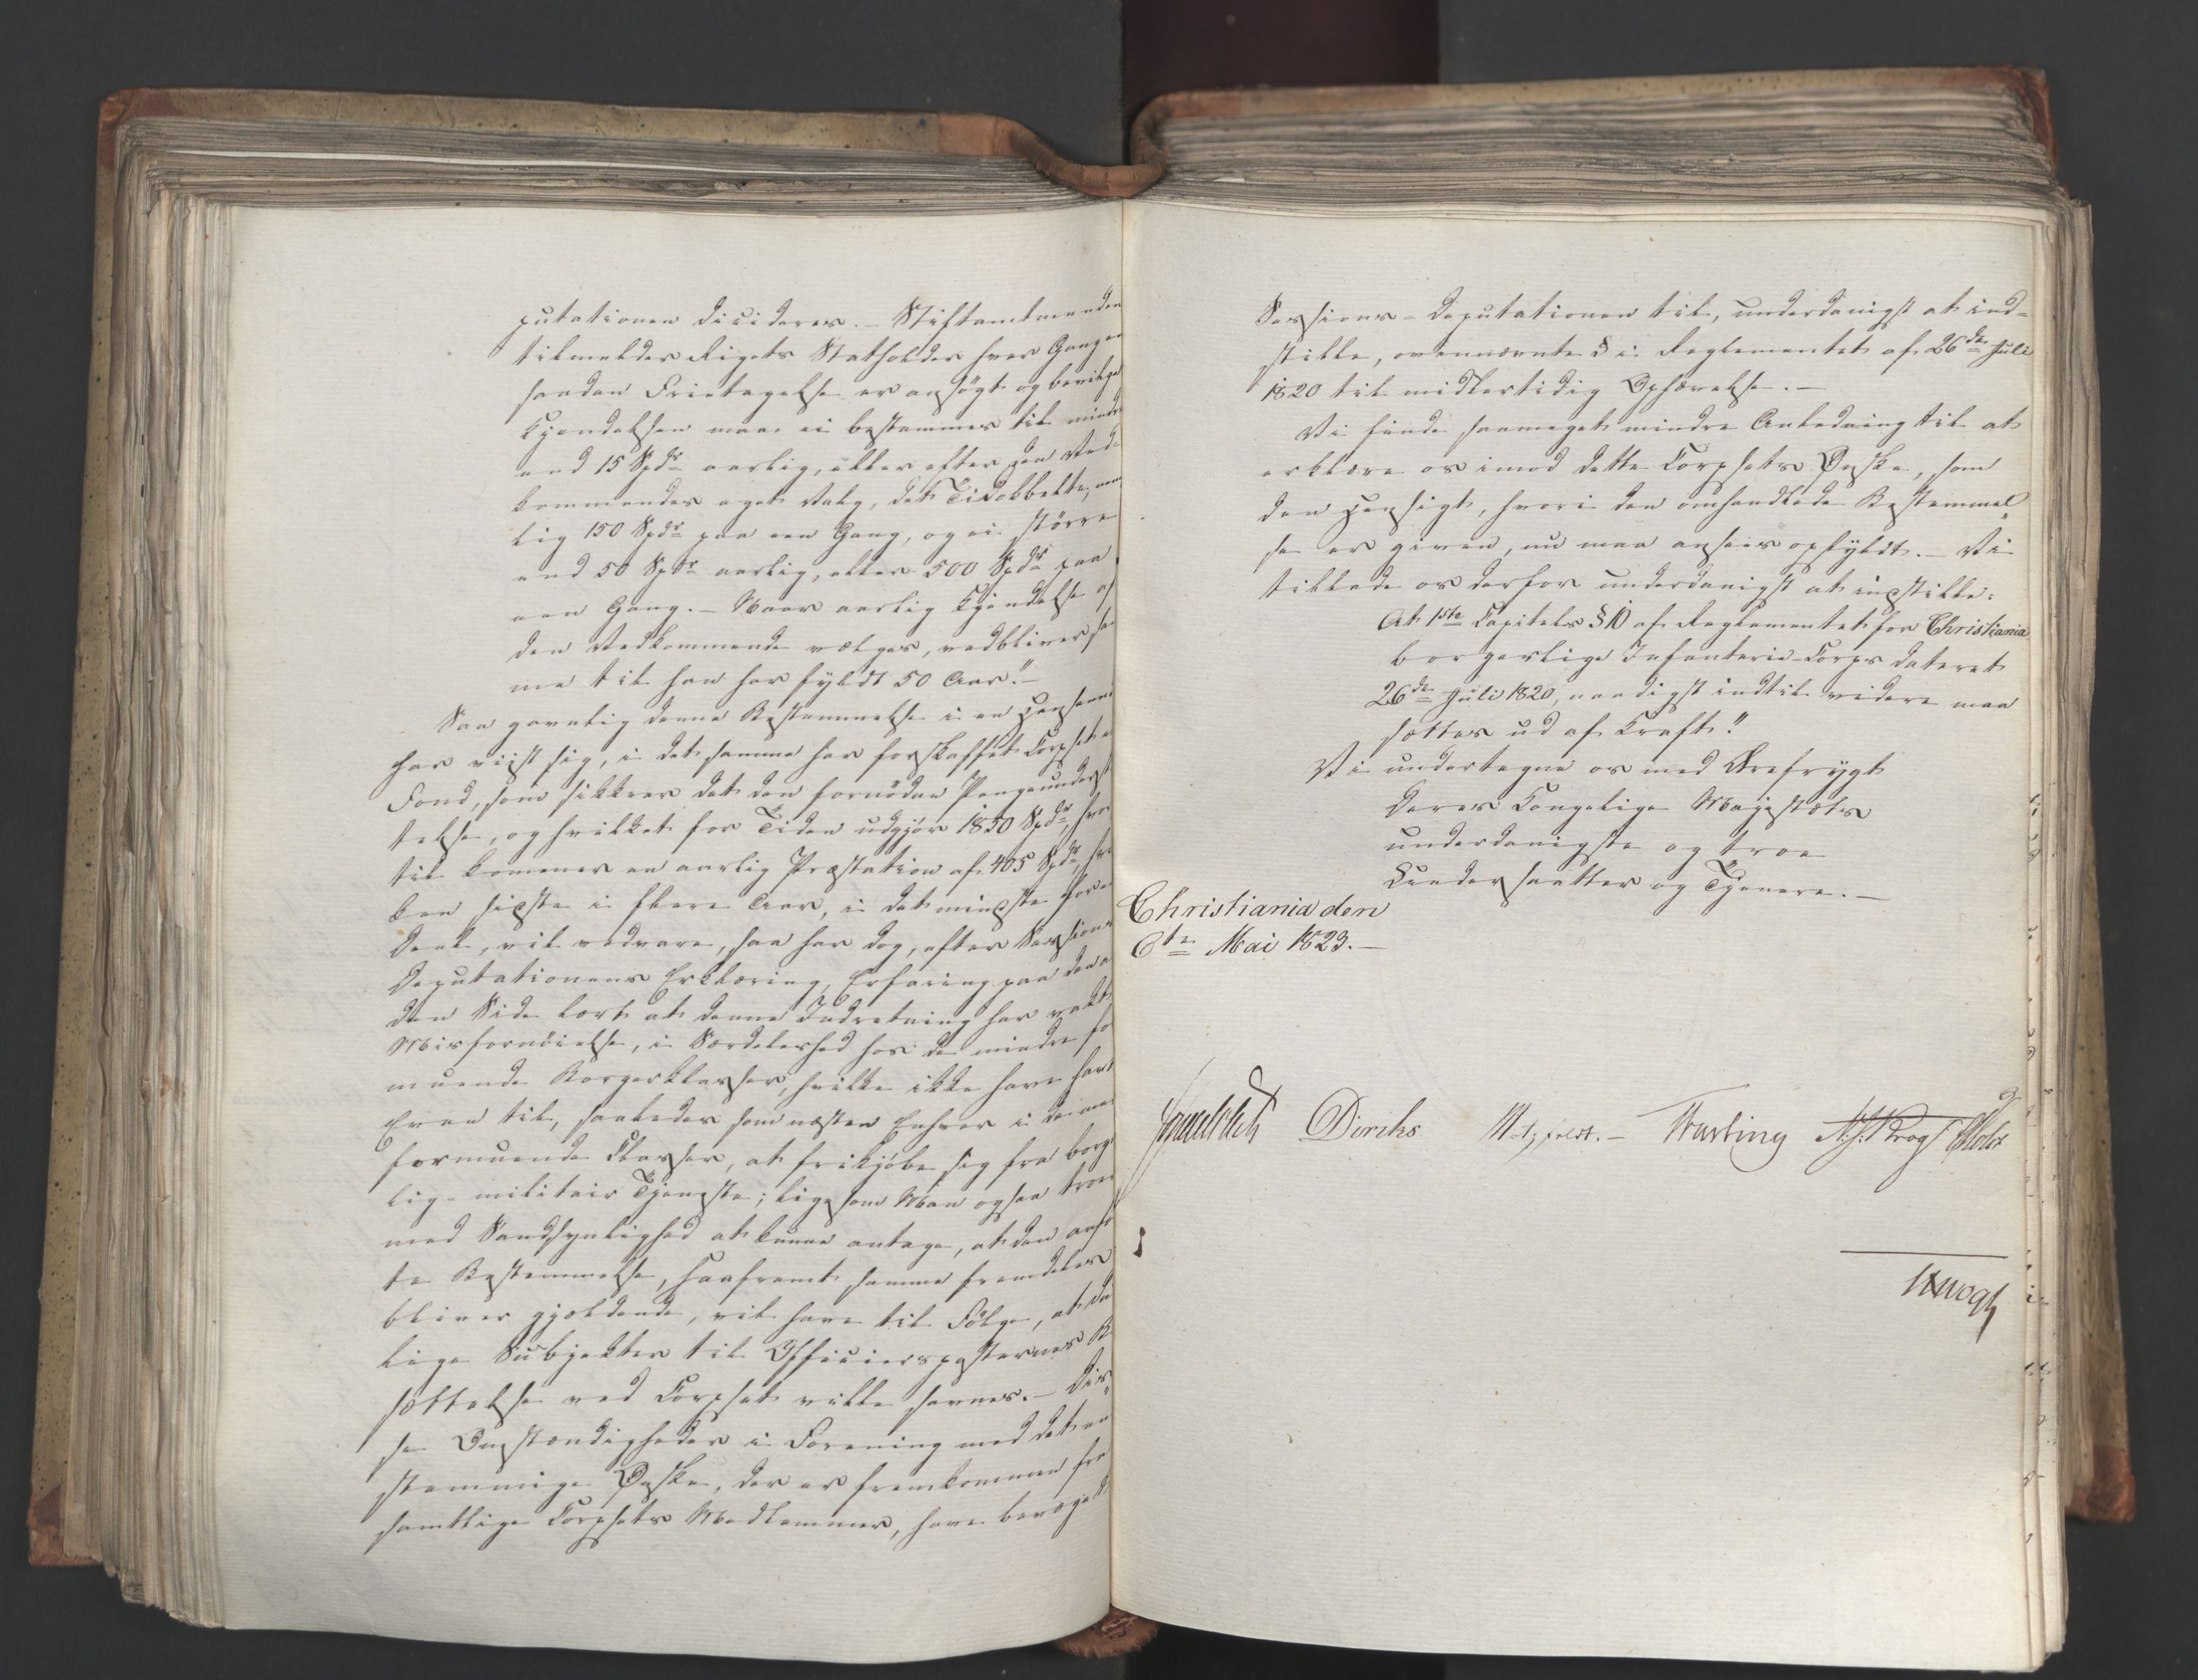 putationen decideres. – Stiftamtmanden
tilmelder Rigets Statholder hver Gang en
saadan Fritagelse er ansögt og bevilget
Kjendelsen maa ei bestemmes til mindre
end 15 Spdr aarlig, eller efter den Ved-
kommendes eget Valg, det Tidobbelte, nem
lig 150 Spdr paa een Gang, og ei större
end 50 Spdr aarlig, eller 500 Spdr paa
een Gang. – Naar aarlig Kjendelse af
den Vedkommende vælges, vedbliver sam
me til han har fyldt 50 Aar." –
Saa gavnlig denne Bestemmelse i en Henseende
har viist sig, i det samme har forskaffet Corpset et
Fond, som sikkrer det den fornödne Pengeunderstöt
telse, og hvilket for Tiden udgjör 1850 Spdr, hvor
til kommer en aarlig Præstation af 405 Spdr, hvil
ken sidste i flere Aar, i det mindste for en
Deel, vil vedvare, saa har dog, efter Sessions
Deputationens Erklæring, Erfaring paa den an
den Side lært at denne Indretning har vakt
Misfornöielse, i Særdeleshed hos de mindre for
muende Borgerklasser, hvilke ikke have havt
Evne til, saaledes som næsten Enhver i de mere
formuende Classer, at frikjöbe sig fra borger
lig-militair Tjeneste; ligesom Man ogsaa troer
med Sandsynlighed at kunne antage, at den anför
te Bestemmelse, saafremt samme fremdeles
bliver gjældende, vil have til Fölge, at due
lige Subjekter til Officiersposternes Be
sættelse ved Corpset ville savnes. – Dis
se Omstændigheder i Forening med det een
stemmige Önske, der er fremkommen fra
samtlige Corpsets Medlemmer, have bevæget
Sessions-Deputationen til, underdanigst at ind-
stille, ovennævnte § i Reglementet af 26de Juli
1820 til midlertidig Ophævelse. –
Vi finde saameget mindre Anledning til at
erklære os imod dette Corpsets Önske, som
den Hensigt, hvori den omhandlede Bestemmel
se er given, nu maa ansees opfyldt. – Vi
tillade os derfor underdanigst at indstille:
At 1ste Capitels § 10 af Reglementet for Christiania
borgerlige Infanterie-Corps dateret
26de Juli 1820, naadigst indtil videre maa
sættes ud af Kraft."
Vi undertegne os med Ærefrygt
Deres Kongelige Majestæts
underdanigste og troe
Undersaatter og Tjenere. –
Christiania den
6te Mai 1823. –
Diriks Motzfeldt. – Krog